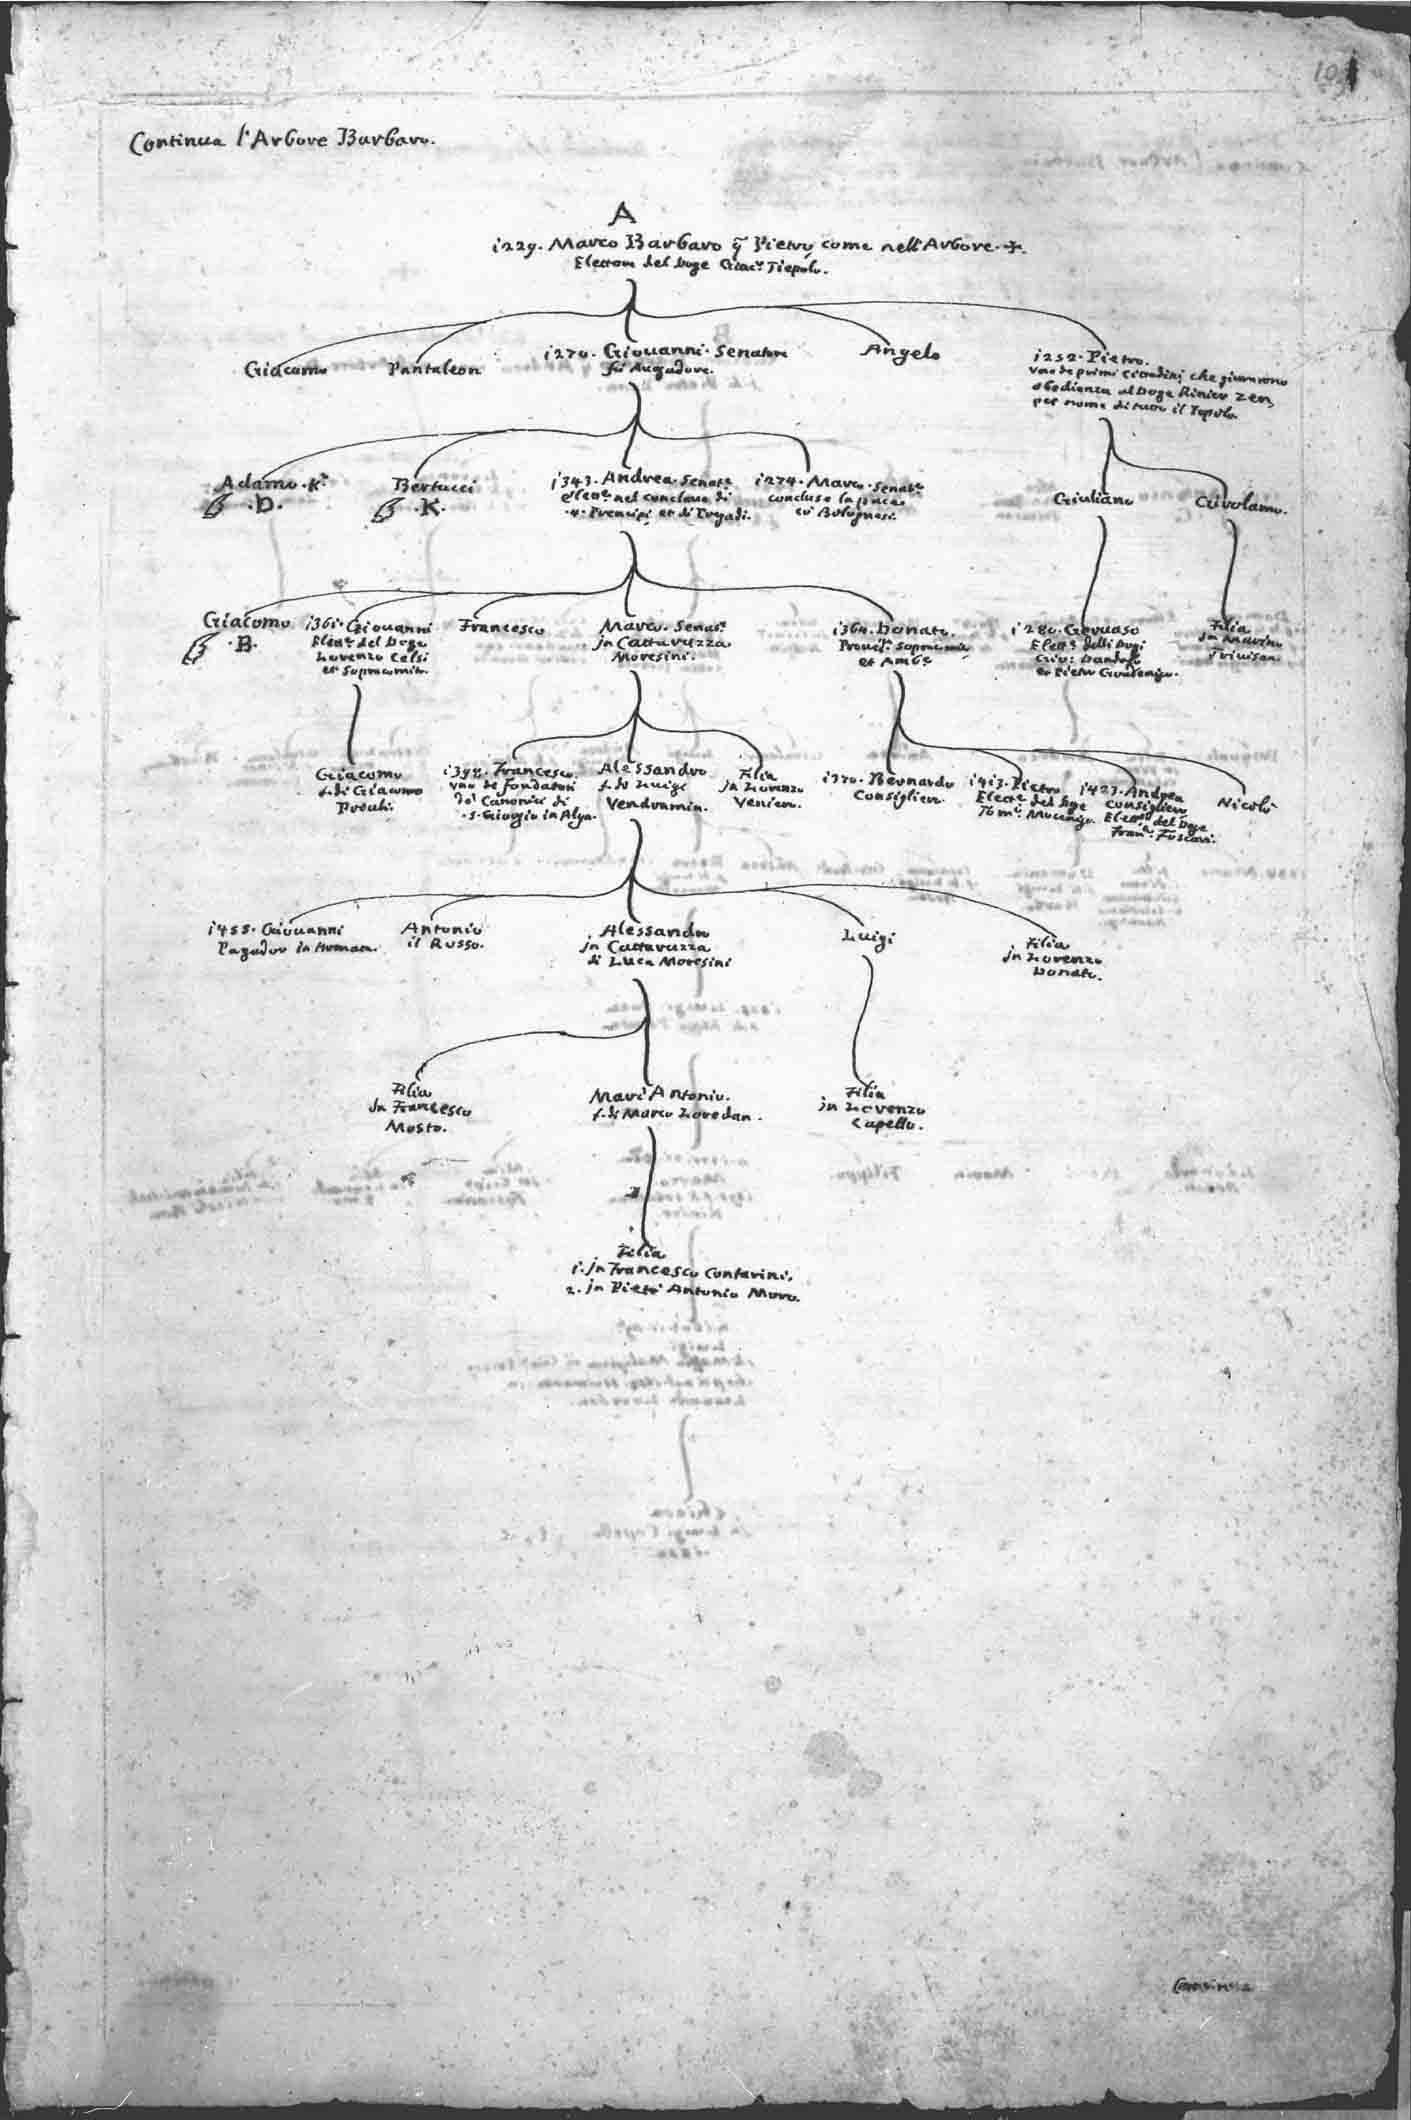 Continua l'Arbore Barbaro.
A
1229. Marco Barbaro q Pietro come nell'Arbore. +.
Elettore del Doge Giac. Tiepolo.
Giacomo
Pantaleon
1270. Giouanni. Senatore
fù Auogadore.
Angelo
1252. Pietro.
vno de primi Cittadini che giurarono
obedienza al Doge Rinier Zen,
per nome di tutto il Popolo.
Adamo. K.r
.D.
Bertucci
.K.
1343. Andrea. Senat.r
elett.r nel conclaue di
.4. Prencipi et di Pregadi.
1274. Marco. Senat.r
concluse la pace
co' Bolognesi.
Giuliano
Girolamo.
Giacomo
.B.
1361. Giouanni
Elett.r del Doge
Lorenzo Celsi
et Sopracomito.
Francesco
Marco. Senat.r
jn Cattaruzza
Moresini.
1364. Donato.
Proued.r Sopracomito
et Amb.r
1280. Geruaso
Elett.r delli Dogi
Gio: Dandolo
et Pietro Gradenigo.
Filia
jn Marino
Triuisan.
Giacomo
f. di Giacomo
Prouli.
1398. Francesco
vno de fondatori
de' Canonici di
.S. Giorgio in Alga.
Alessandro
f. di Luigi
Vendramin.
Filia
jn Lorenzo
Venier.
1370. Bernardo
Consiglier.
1413. Pietro
Elett.r del Doge
Tom.o Mocenigo.
1423. Andrea
Consiglier
Elett.r del Doge
Fran.co Foscari.
Nicolò
1455. Giouanni
Pagador in Armata.
Antonio
il Rosso.
Alessandro
jn Cattaruzza
di Luca Moresini
Luigi
Filia
jn Lorenzo
Donato.
Filia
Jn Francesco
Mosto.
Marc'Antonio.
f. di Marco Loredan.
Filia
jn Lorenzo
Capello.
Filia
1. jn Francesco Contarini.
2. jn Pietr' Antonio Moro.